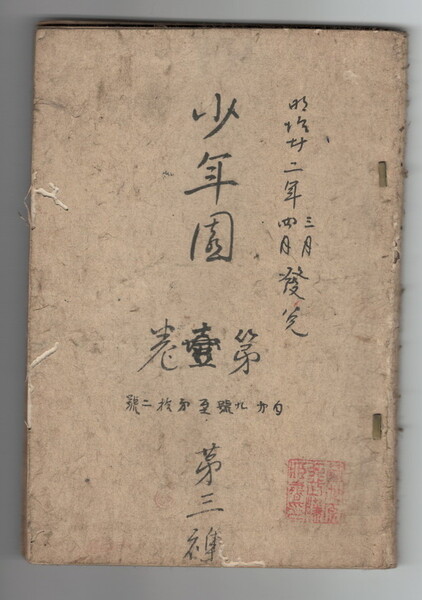 明治廿二年三月四月發兌
少年園
第壹卷
九號至第拾二號
第三